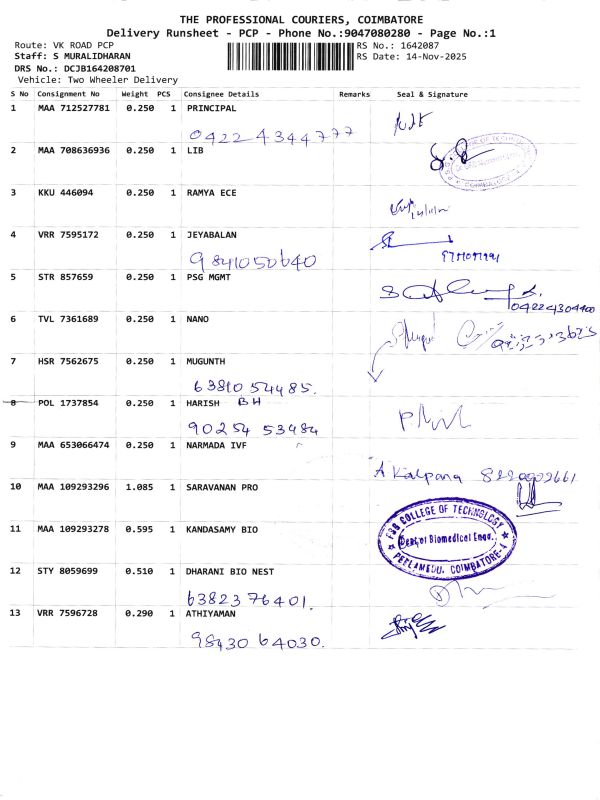 THE PROFESSIONAL COURIERS, COIMBATORE
Delivery Runsheet - PCP - Phone No.:9047080280 - Page No.:1
Route: VK ROAD PCP
RS No.: 1642087
Staff: S MURALIDHARAN
RS Date: 14-Nov-2025
DRS No.: DCJB164208701
Vehicle: Two Wheeler Delivery
S No Consignment No Weight PCS Consignee Details Remarks Seal & Signature
1 MAA 712527781 0.250 1 PRINCIPAL
04224344777
2 MAA 708636936 0.250 1 LIB
3 KKU 446094 0.250 1 RAMYA ECE
4 VRR 7595172 0.250 1 JEYABALAN
9841050640
5 STR 857659 0.250 1 PSG MGMT
04224304400
6 TVL 7361689 0.250 1 NANO
7 HSR 7562675 0.250 1 MUGUNTH
6381054485.
8 POL 1737854 0.250 1 HARISH BH
90254 53484
9 MAA 653066474 0.250 1 NARMADA IVF
A Kalpana
10 MAA 109293296 1.085 1 SARAVANAN PRO
11 MAA 109293278 0.595 1 KANDASAMY BIO
PSG COLLEGE OF TECHNOLOGY
Dept of Biomedical Engg.
PEELAMEDU, COIMBATORE-4
12 STY 8059699 0.510 1 DHARANI BIO NEST
6382376401.
13 VRR 7596728 0.290 1 ATHIYAMAN
98430 64030.